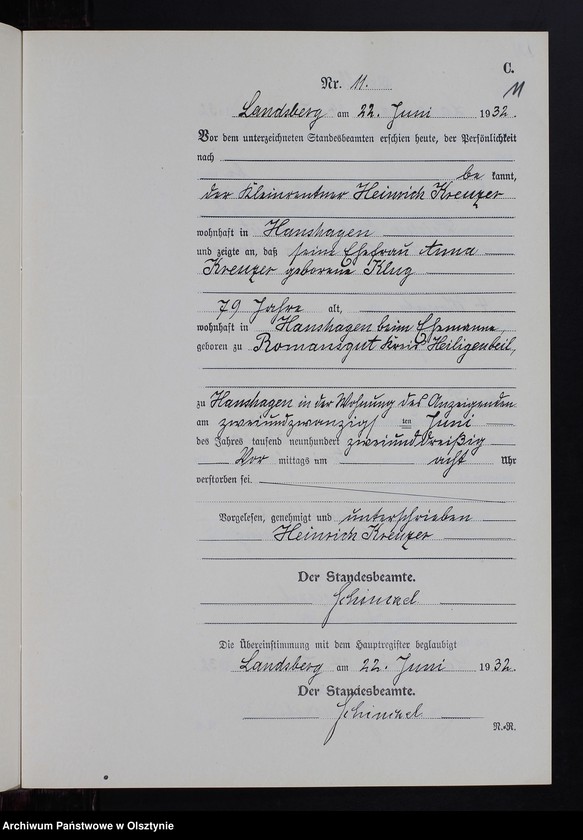 C.
11
Nr. 11.
Landsberg am 22. Juni 1932.
Vor dem unterzeichneten Standesbeamten erschien heute, der Persönlichkeit
nach
be kannt,
der Kleinrentner Heinrich Kreuzer
wohnhaft in Hanshagen
und zeigte an, daß seine Ehefrau Anna
Kreuzer geborene Klug
79 Jahre alt,
wohnhaft in Hanshagen beim Ehemanne,
geboren zu Romansgut Kreis Heiligenbeil,
zu Hanshagen in der Wohnung des Anzeigenden
am zweiundzwanzigsten Juni
des Jahres tausend neunhundert zweiunddreißig
Vor mittags um acht Uhr
verstorben sei.
Vorgelesen, genehmigt und unterschrieben
Heinrich Kreuzer
Der Standesbeamte.
Schinkel
Die Übereinstimmung mit dem Hauptregister beglaubigt
Landsberg am 22. Juni 1932.
Der Standesbeamte.
Schinkel
N.-R.
Archiwum Państwowe w Olsztynie